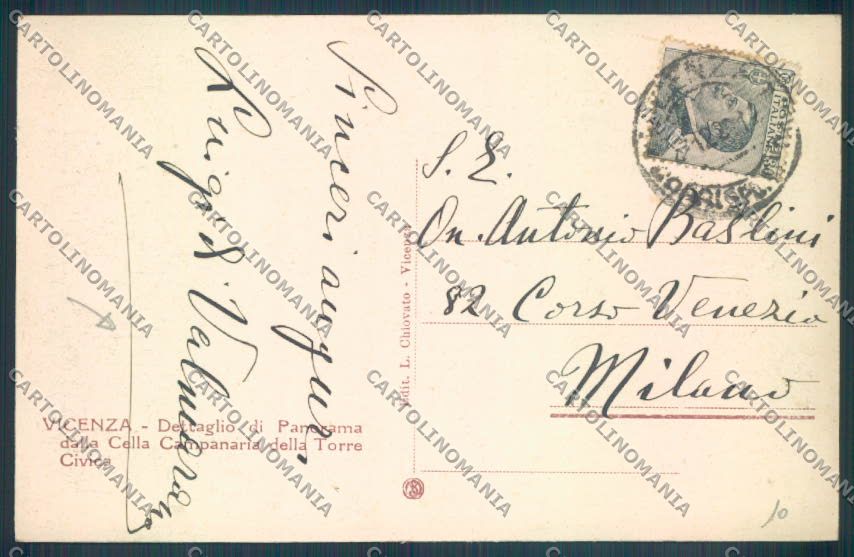 Sinceri auguri
Luigi di Valmarana
VICENZA - Dettaglio di Panorama
dalla Cella Campanaria della Torre
Civica
Edit. L. Chiovato - Vicenza
S. E.
On. Antonio Baslini
82 Corso Venezia
Milano
10
CARTOLINOMANIA